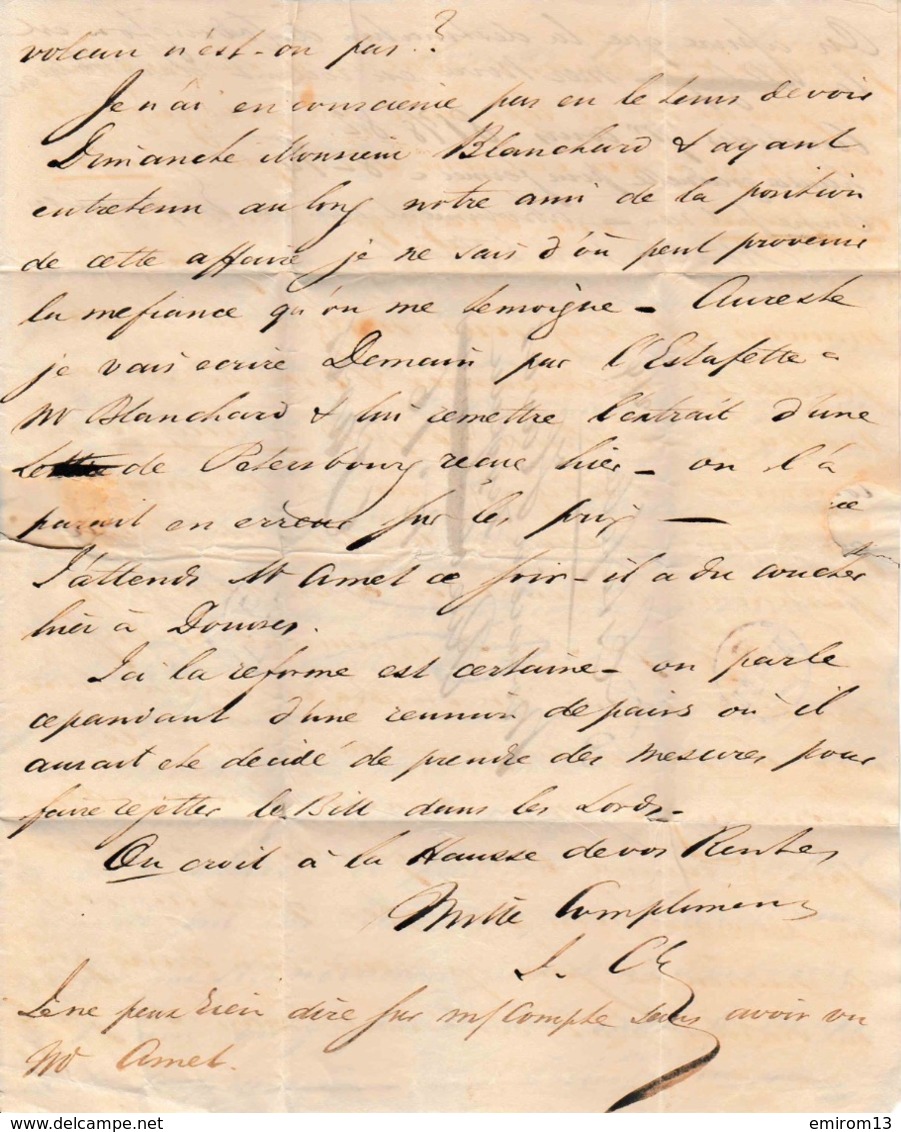 volcan n'est-on pas ?
Je n'ai en conscienie pas eu le tems de voir
Dimanche Monsieur Blanchard & ayant
entretenu au long notre ami de la position
de cette affaire je ne sais d'où peut provenir
la mefiance qu'on me temoigne - Aureste
je vais ecrire Demain par l'Estafette a
Mr Blanchard & lui remettre l'extrait d'une
de Petersbourg recue hier - on l'à
parait en erreur sur les prix —
J'attends Mr Amet ce soir - il a du coucher
hier à Douvres.
Ici la reforme est certaine - on parle
cependant d'une reunion de pairs où il
aurait ete decidé de prendre des mesures pour
faire rejetter le Bill dans les Lords -
On croit à la Hausse de vos Rentes
Mille Complimens
J.
Je ne peux rien dire sur m/ Compte sans avoir vu
Mr Amet.
delcampe.net
emirom13